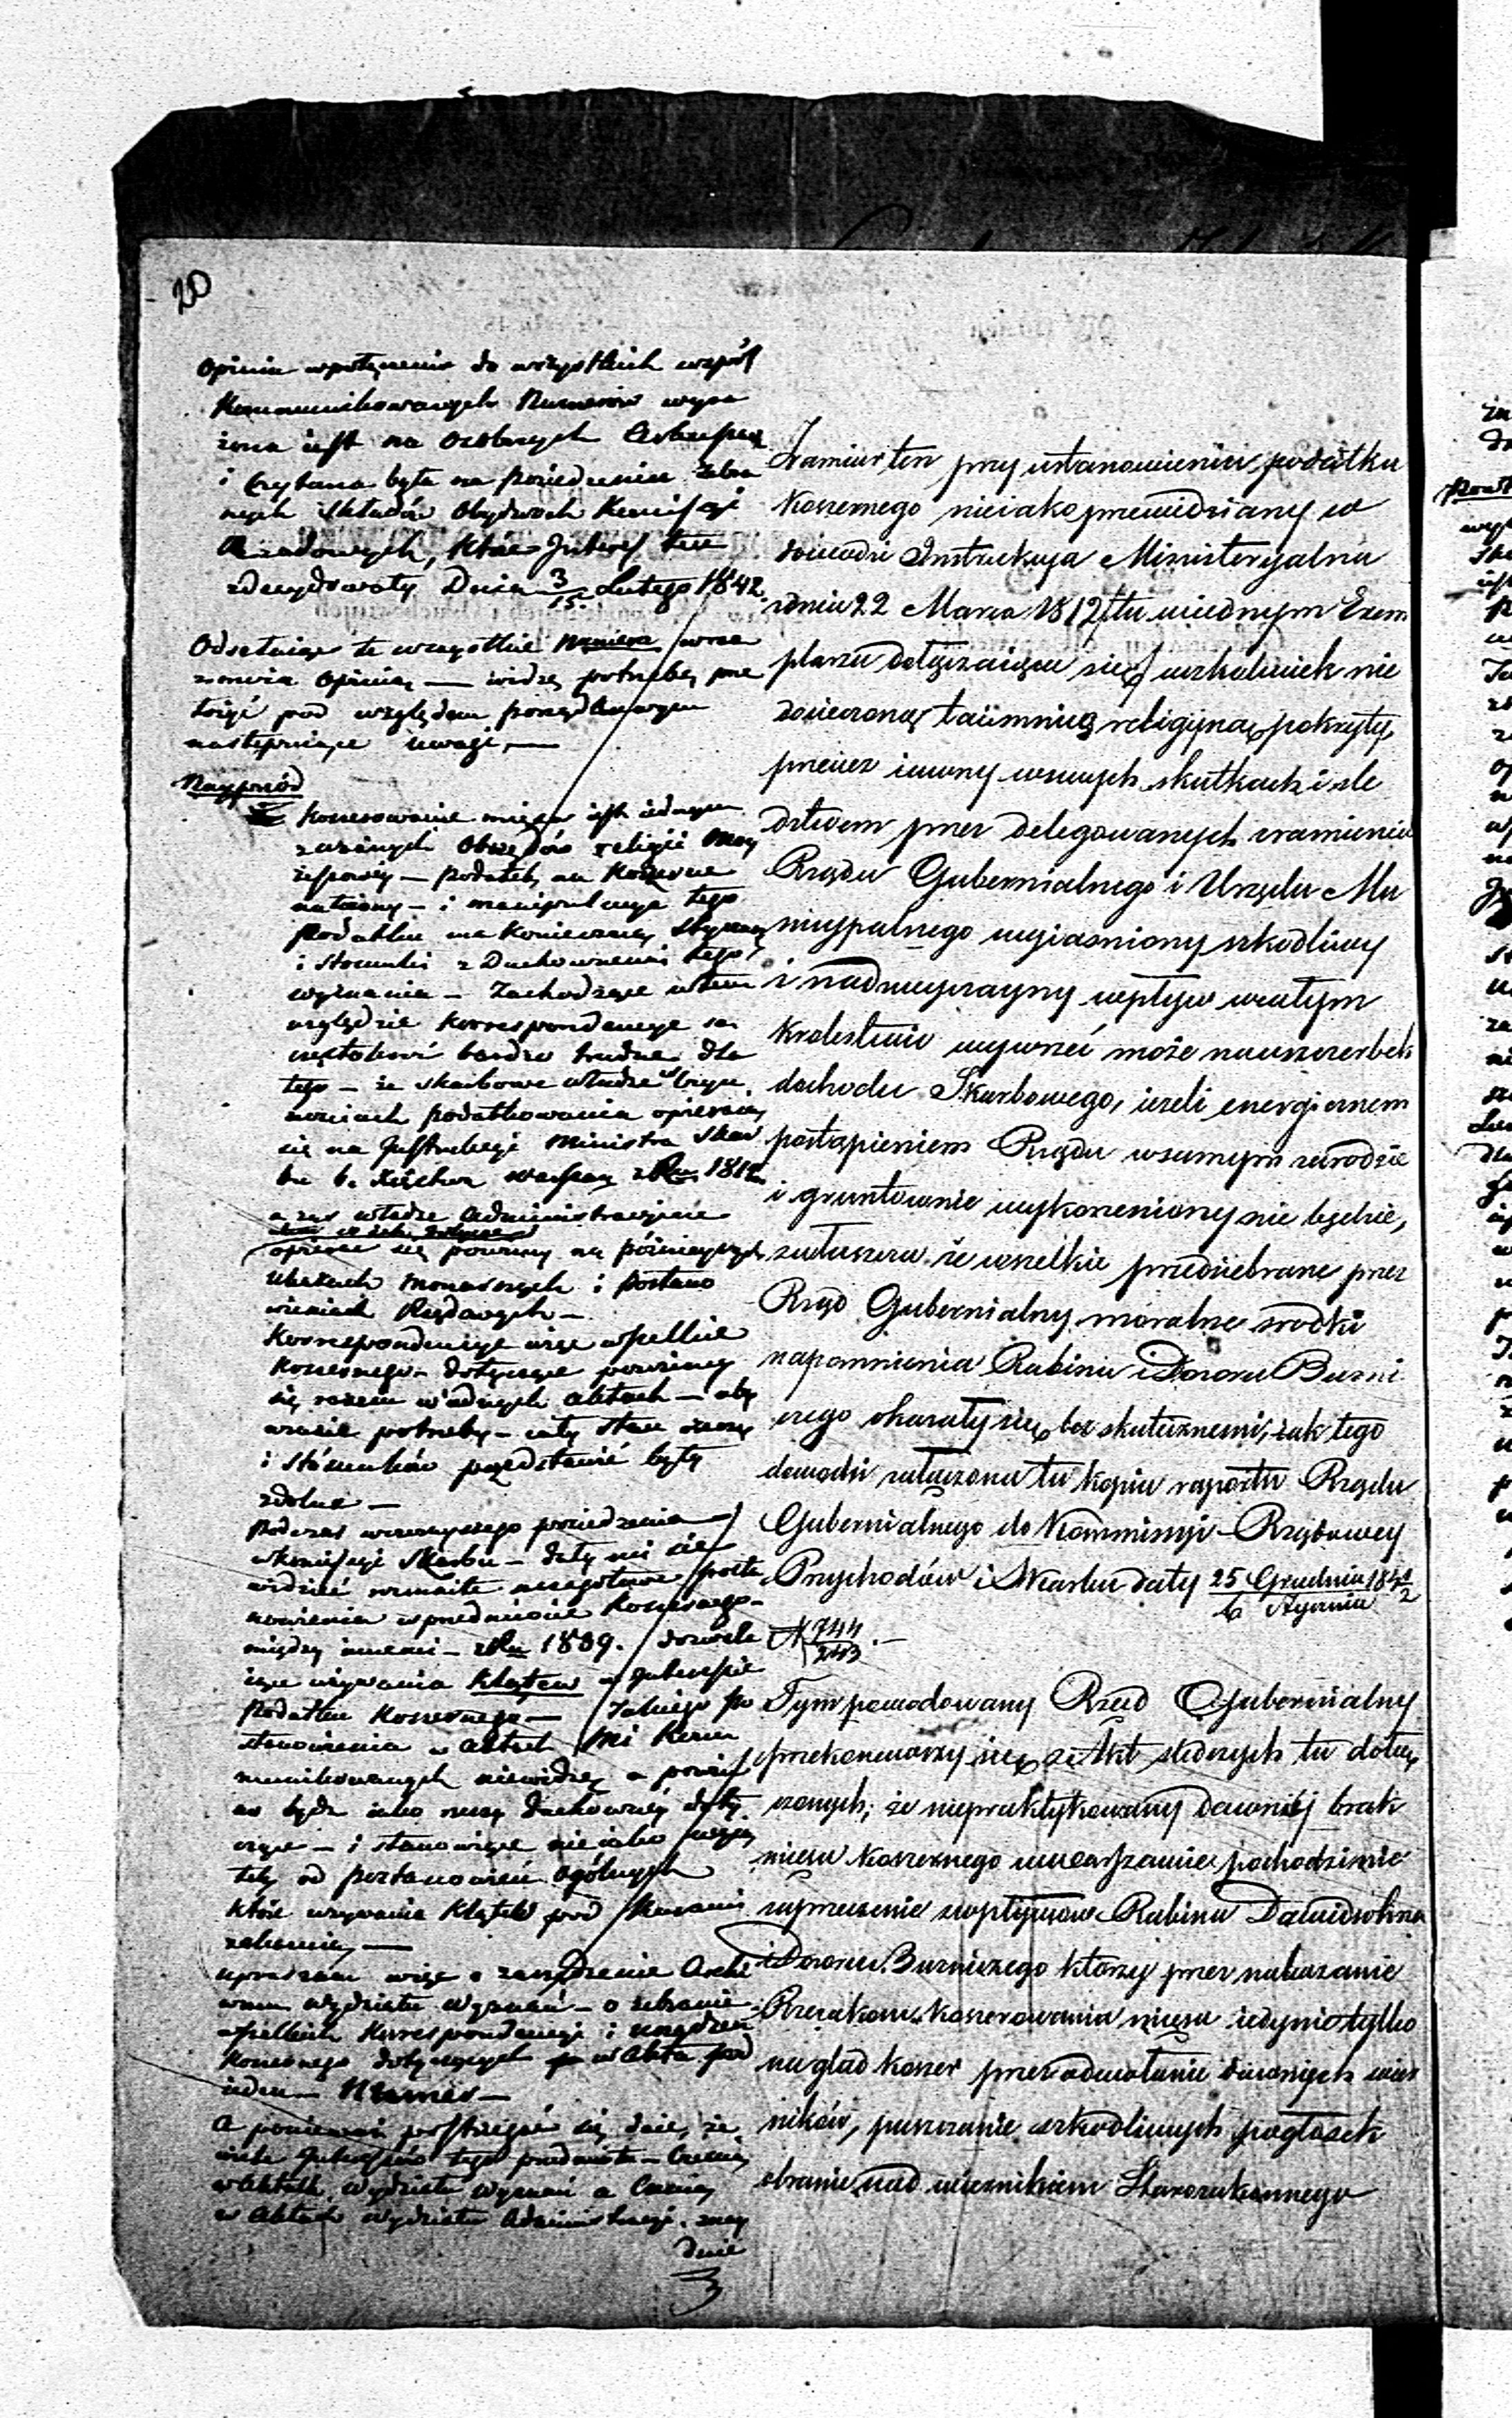 20
Opinia w połączeniu do wszystkich współ
Kommunikowanych Numerów wyra
żona jest na osobnych
i czytana była na posiedzeniu
nych składów Obydwóch Kommissyi
Rządowych, które Interes ten
zdecydowały Dnia 3/15 Lutego 1842.
Odsełając te wszystkie Numera wraz
z moią Opinią — widzę potrzebę prze
łożyć pod względem porządkowym
następujące uwagi —
Nayprzód
Koszerowanie mięsa jest jednym
z ważnych Obrzędów religii Moy
żeszowey — podatek na Koszerne
nałożony — i manipulacya tego
podatku ma konieczną styczność
i stosunki z Duchownemi tego
wyznania — Zachodzące w tem
względzie korrespondencye są
częstokroć bardzo trudne dla
tego — że skarbowe władze w
podatkowania opierają
się na Instrukcyi Ministra Skar
bu b. Xięstwa Warszaw z Ru 1812
a zaś władze Administracyjne
opierać się powinny na późnieyszych
Ukazach Monarszych i postano
wieniach Rządowych —
Korrespondencye więc wszelkie
Koszernego dotyczące powinny
się razem w iednych aktach — aby
w razie potrzeby — cały stan rzeczy
i stósunków przedstawić były
zdolne —
Podczas wczorayszego posiedzenia
w Komissyi Skarbu — dały mi się
widzieć rozmaite szczegółowe posta
nowienia w przedmiocie Koszernego —
między innemi — z Ru 1839. dozwala
jące używania klątew w Interessie
Podatku Koszernego — Takiego po
stanowienia w aktach mi Kom
munikowanych niewidzę a powin
no być iako rzeczy duchowney doty
czące — i stanowiące nieiako wyią
tek od postanowień ogólnych
które używania Klątw pod karami
zabronią —
upraszam więc o zarządzenie Archi
wum wydziału Wyznań — o zebranie
wszelkich Korrespondencyi i urządzeń
Koszernego dotyczących w Akta pod
iednem Numer —
A ponieważ postrzegać się daie, że
wiele Interessów tego przedmiotu — częścią
w Aktach Wydziału Wyznań a Częścią
w Aktach wydziału Administracyi znay
duie
Zamiar ten przy ustanowieniu podatku
Koszernego nieiako przewidziany w
dowodzi Instrukcya Ministeryalna
z dnia 22 Marca 1812 / tu w iednym Exem
plarzu dołączaiąca się / w szkolwiek nie
docieczoną taiemnicą religijną pokryty,
przeciez iawny w swych skutkach i sle
dztwem przez delegowanych z ramienia
Rządu Gubernialnego i Urzędu Mu
nicypalnego wyiasniony szkodliwy
i nadzwyczayny wpływ w całym
Krolestwie wywrzeć może na uszczerbek
dochodu Skarbowego, iezeli energicznem
postąpieniem Rządu w samym zarodzie
i gruntownie wykorzeniony nie będzie,
zwłaszcza że wszelkie przedsiebrane przez
Rząd Gubernialny moralne srodki
napomnienia Rabina i Dozoru Bużni
czego okazały się bezskutecznemi, iak tego
dowodzi załączona tu kopia raportu Rządu
Gubernialnego do Kommissyi Rządowey
Przychodów i Skarbu daty 25 Grudnia/6 Stycznia 184 1/2
N 744/243. —
Tym powodowany Rząd Gubernialny
przekonawszy się z Akt sledczych tu dołą
czonych, że niepraktykowany dawniej brak
mięsa Koszernego w Warszawie pochodzi nie
zaprzeczenie z wpływów Rabina Dawidsohna
i Dozoru Bużniczego ktorzy przez nakazanie
Rzezakom Koszerowania mięsa iedynie tylko
na glad koszer przez odwołanie dawnych wier
ników, puszczanie szkodliwych pogłosek
obranie nad wiernikiem Starozakonnego